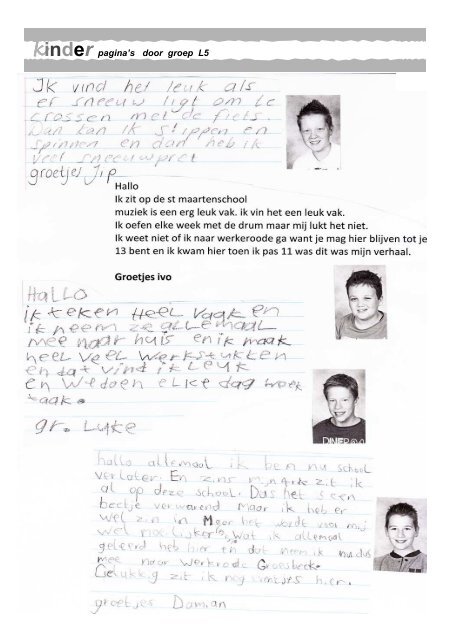 kinder pagina's door groep L5
Ik vind het leuk als
er sneeuw ligt om te
crossen met de fiets.
Dan kan ik slippen en
spinnen en dan heb ik
veel sneeuwpret
groetjes Jip
Hallo
Ik zit op de st maartenschool
muziek is een erg leuk vak. ik vin het een leuk vak.
Ik oefen elke week met de drum maar mij lukt het niet.
Ik weet niet of ik naar werkeroode ga want je mag hier blijven tot je
13 bent en ik kwam hier toen ik pas 11 was dit was mijn verhaal.
Groetjes ivo
Hallo
ik teken Heel vaak en
ik neem ze allemaal
mee naar huis en ik maak
heel veel werkstukken
en dat vind ik leuk
en we doen elke dag woek
taak.
gr. Luke
hallo allemaal ik ben nu school
verlater. En zins mijn zit ik
al op deze school. Das het een
beetje verwarend Maar ik heb er
wel zin in Maar het wordt voor mij
wel moelijker, wat ik allemaal
geleerd heb hier en dat neem ik dus
mee naar Werkrode Groesbeek.
Gelukkig zit ik nog hier.
groetjes Damian